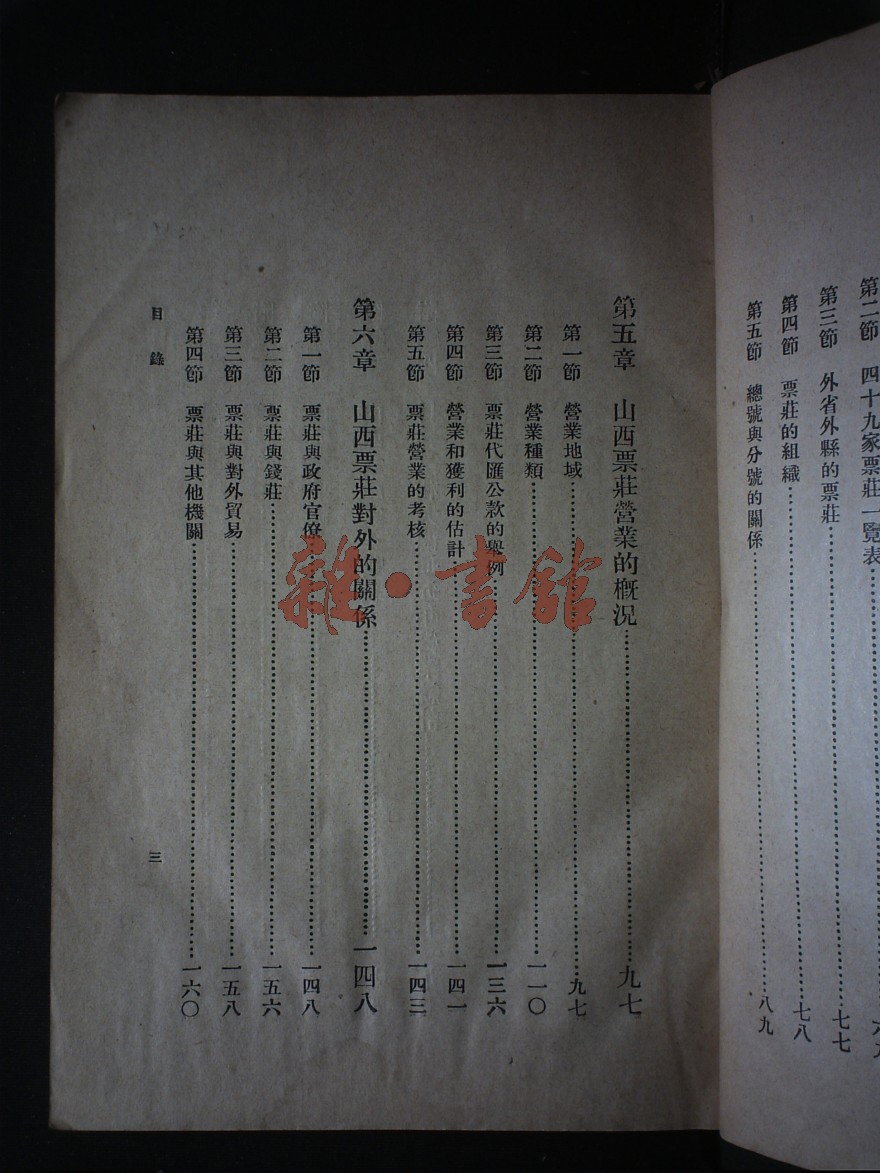 第二節 四十九家票莊一覽表
第三節 外省外縣的票莊 七七
第四節 票莊的組織 七八
第五節 總號與分號的關係 八九
第五章 山西票莊營業的概況 九七
第一節 營業地域 九七
第二節 營業種類 一一〇
第三節 票莊代匯公款的舉例 一三六
第四節 營業和獲利的估計 一四一
第五節 票莊營業的考核 一四三
第六章 山西票莊對外的關係 一四八
第一節 票莊與政府官僚 一四八
第二節 票莊與錢莊 一五六
第三節 票莊與對外貿易 一五八
第四節 票莊與其他機關 一六〇
目錄 三
雜·書館